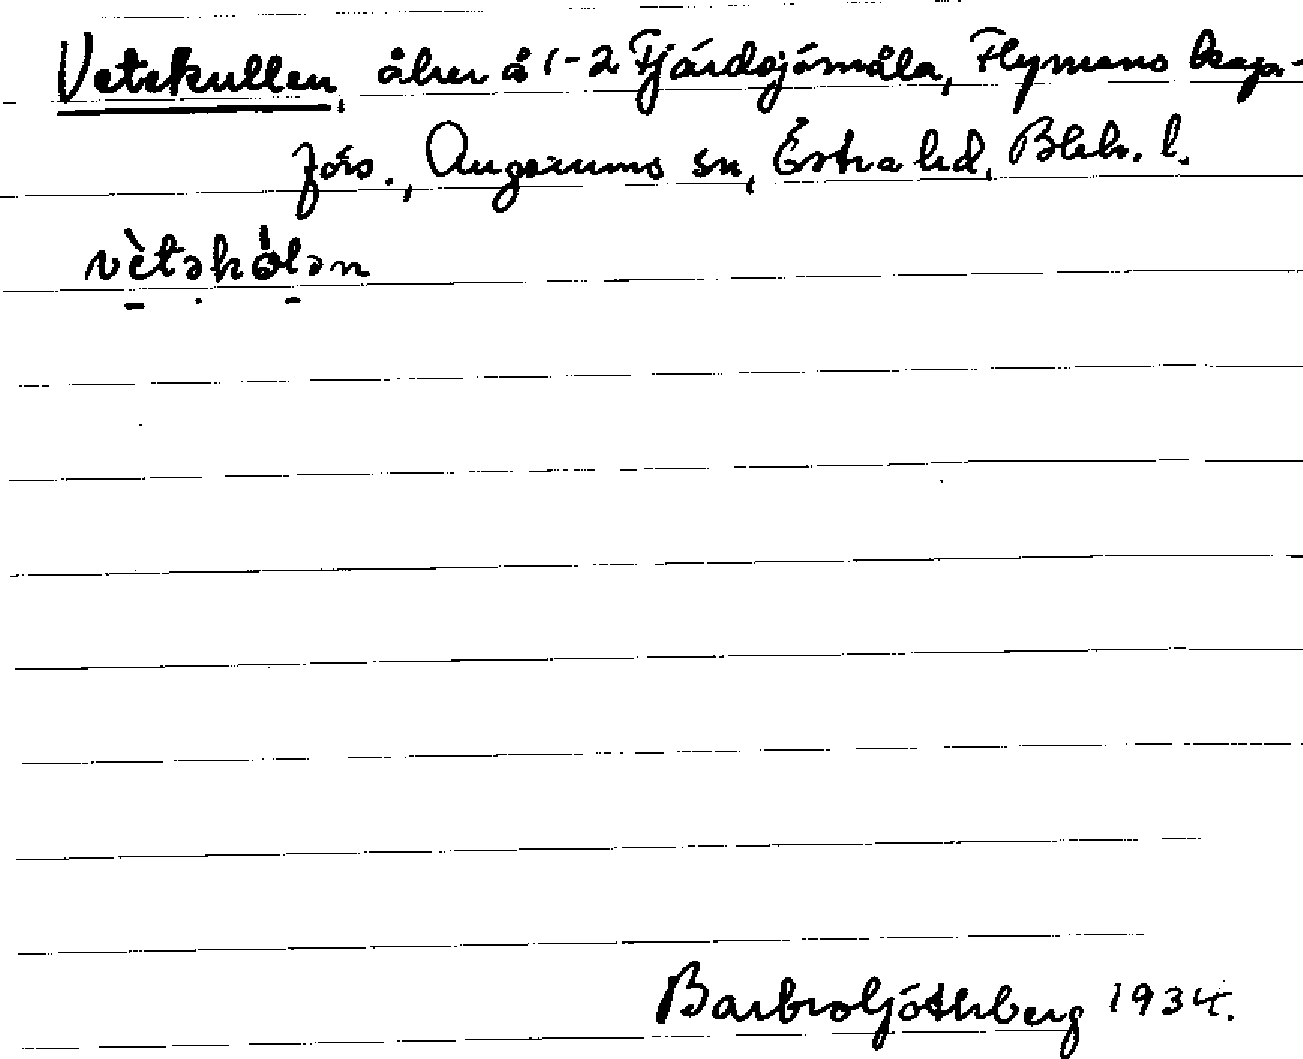 Vetekullen, åker å 1-2 Fjärdsjömåla, Flymens kap-
förs., Augerums sn, Östra hd, Blek. l.
vètəkȯ́lən
Barbro Göthberg 1934.